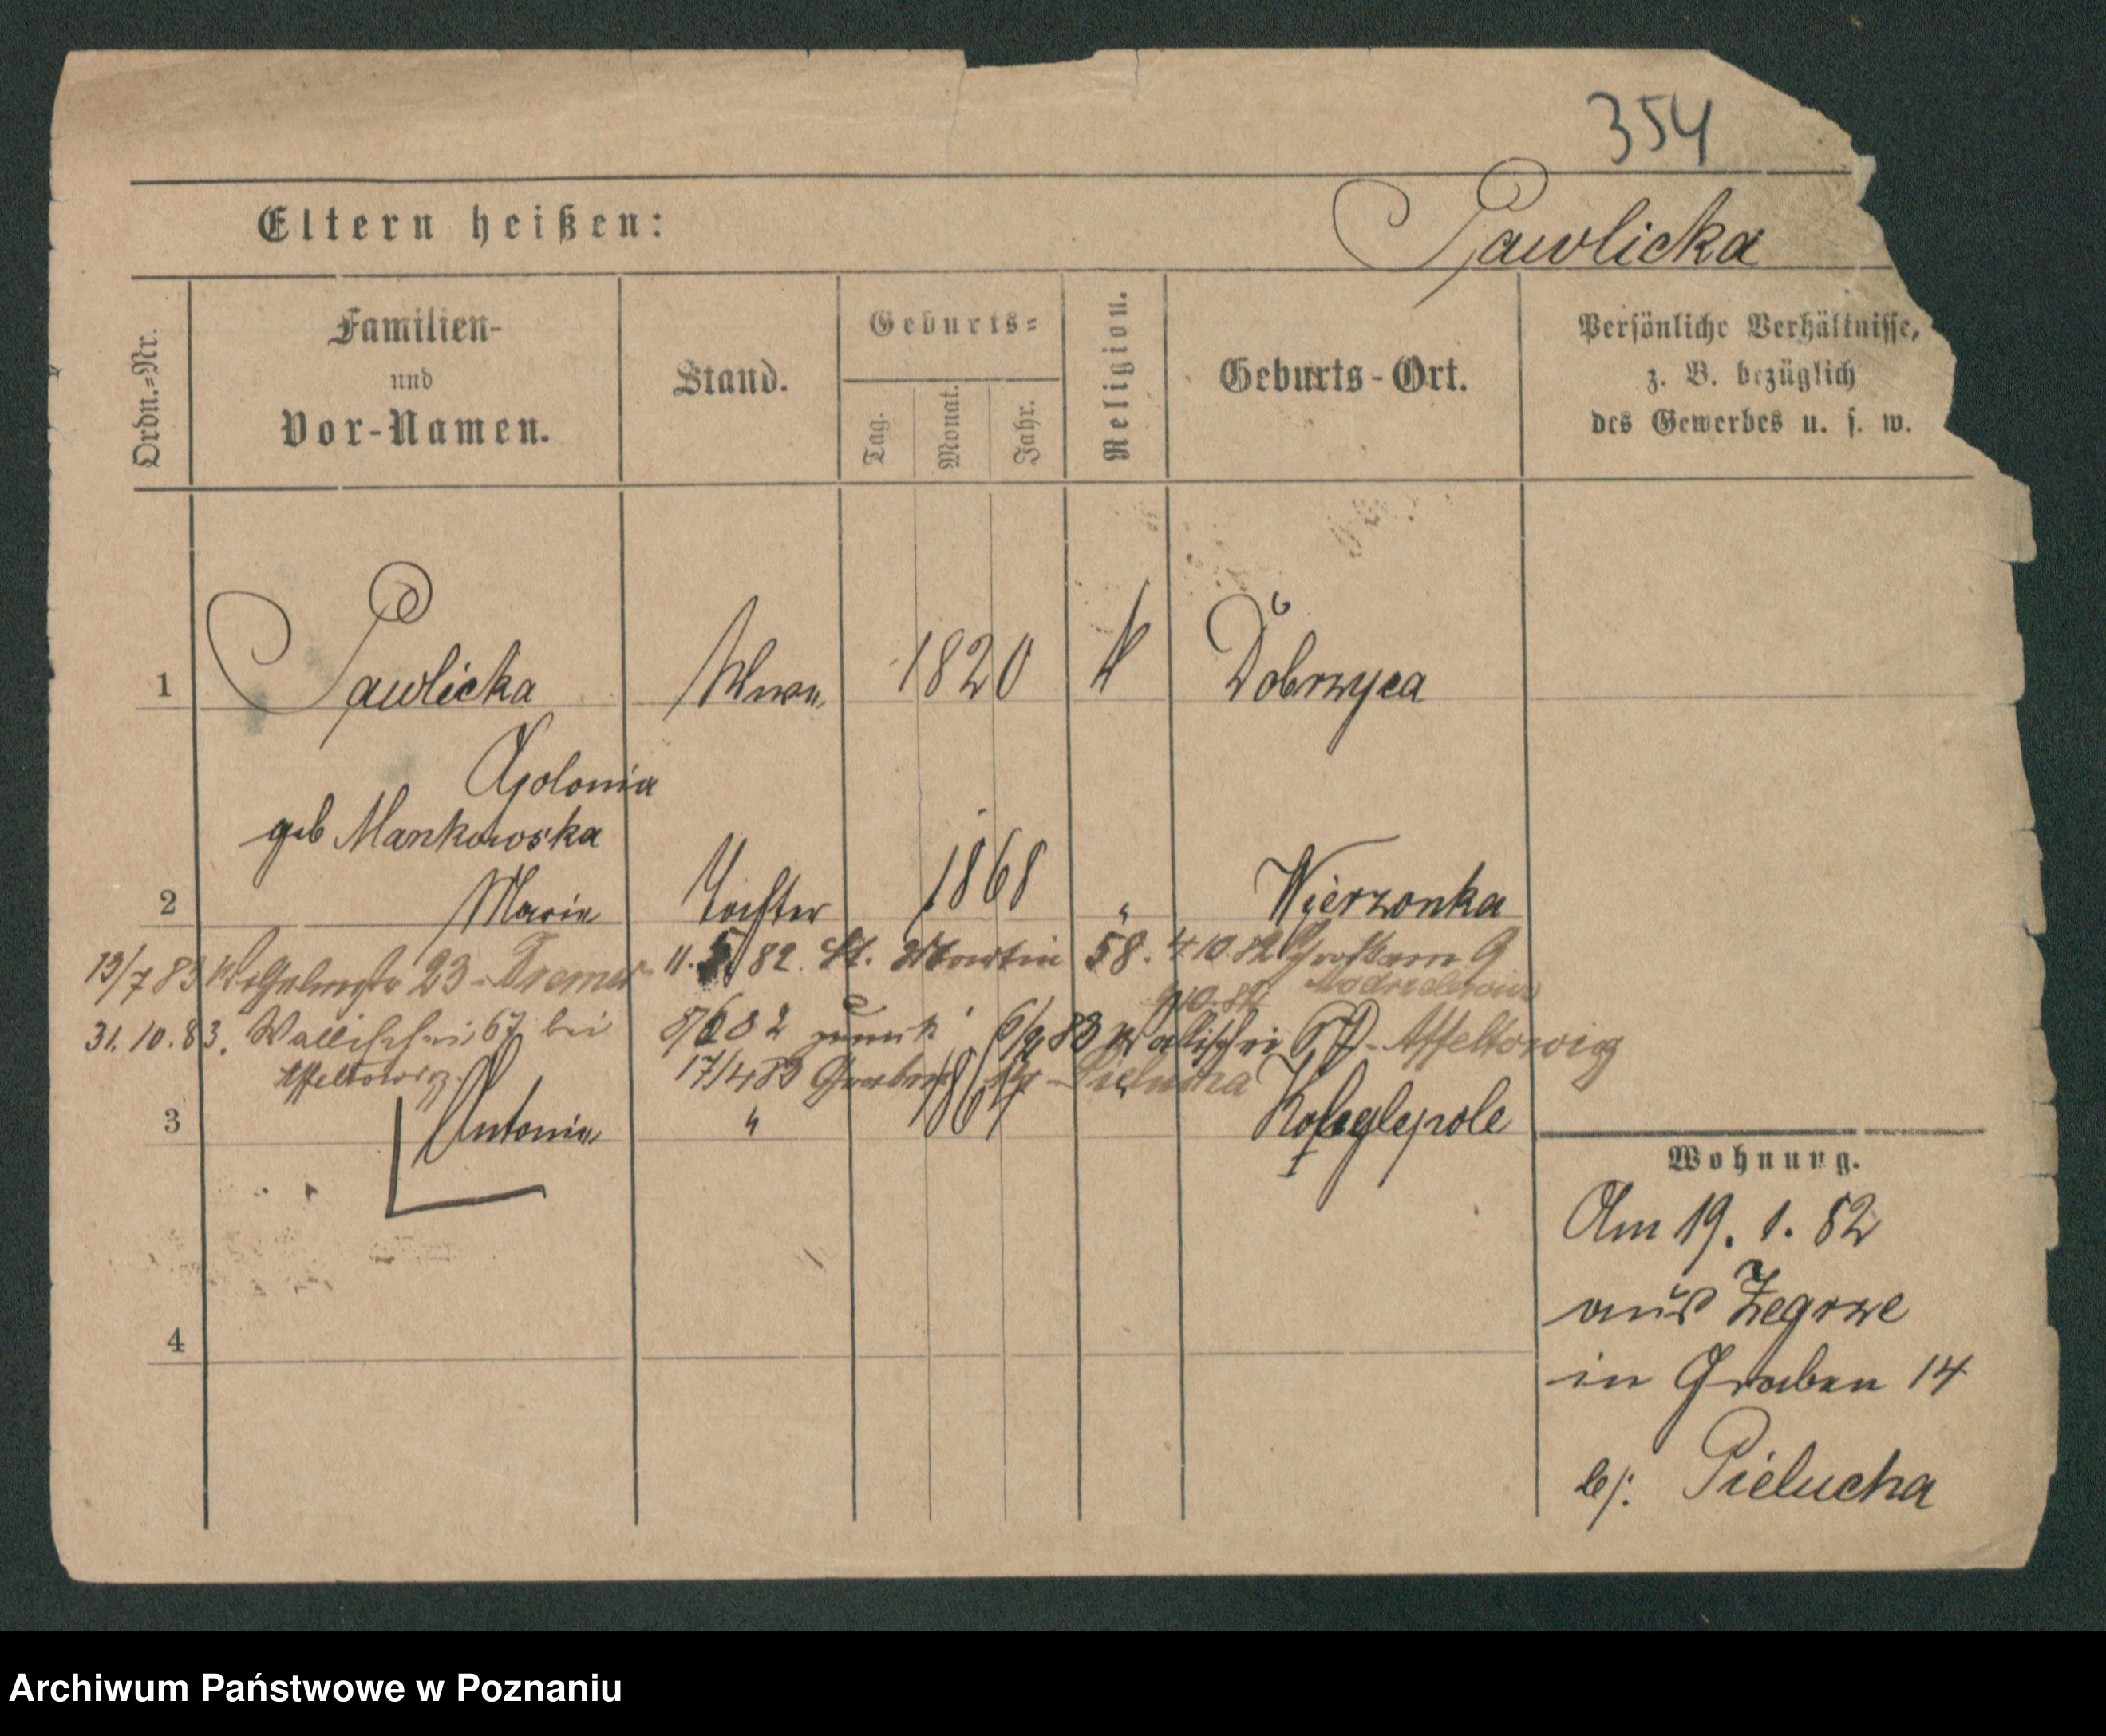 354
Eltern heißen: Pawlicka
Ordn.=Nr.
Familien-
und
Vor-Namen.
Stand.
Geburts=
Tag.
Monat.
Jahr.
Religion.
Geburts-Ort.
Persönliche Verhältnisse,
z. B. bezüglich
des Gewerbes u. s. w.
1 Pawlicka 1820 K Dobrzyca
Apolonia
geb Mankowska
2 Maria Tochter 1868 " Wierzonka
13/7 83 23 - Kremer 11.5.82. St. Martin 58. 4.10.82 9
31.10.83. Wallischei 67 bei 8/6 82 zurück 6/9 83 Wallischei 67 - Affeltowicz
Affeltowicz. 17/4 83 Graben 14 - Pielucha
3 Antonia " 1864
4
Wohnung.
Am 19. 1. 82
aus Zegrze
in Graben 14
b/: Pielucha
Archiwum Państwowe w Poznaniu